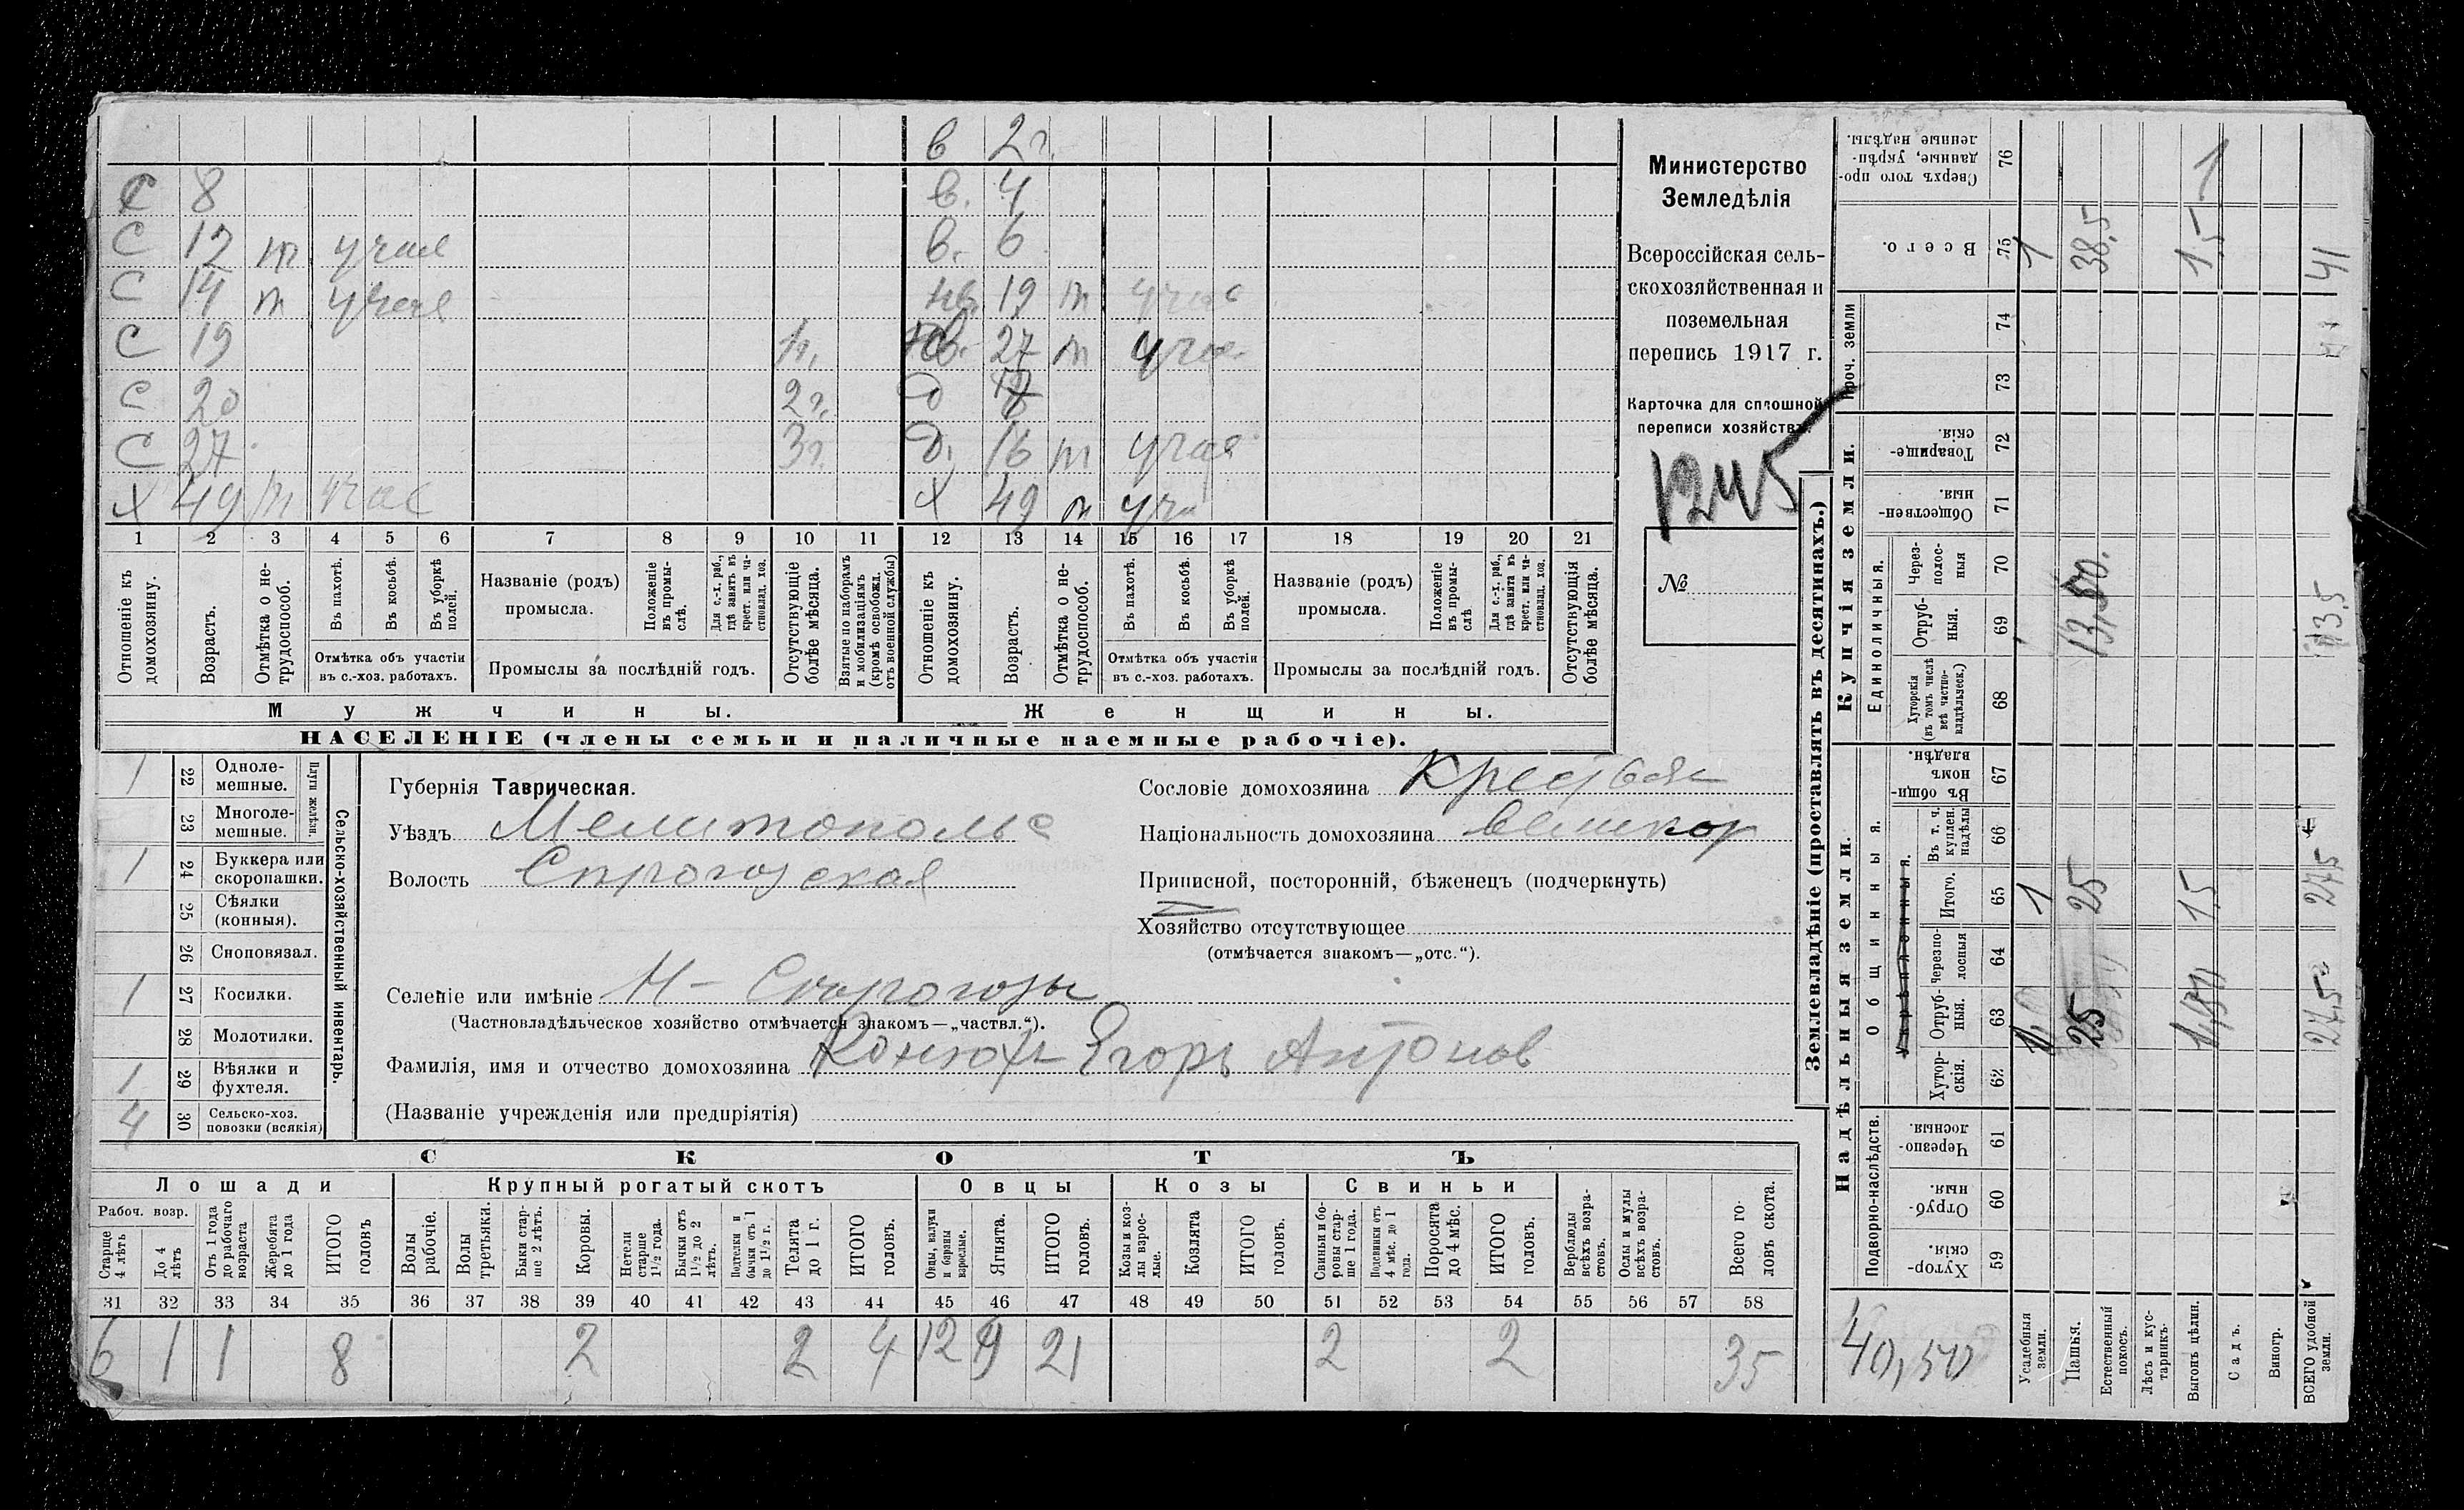 в 2 г.
С 8 в. 4
С 12 т учас в. 6
С 14 т учас нв. 19 т учас
С 19 1г. нв. 27 т учас
С 20 2г. д
С 27 3г. д. 16 т учас
Х 49 т учас Х 49 т уч
1 2 3 4 5 6 7 8 9 10 11 12 13 14 15 16 17 18 19 20 21
Отношеніе къ домохозяину.
Возрастъ.
Отмѣтка о не-трудоспособ.
Въ пахотѣ.
Въ косьбѣ.
Въ уборкѣ полей.
Отмѣтка объ участіи въ с.-хоз. работахъ.
Названіе (родъ) промысла.
Положеніе въ промы-слѣ.
Для с.-х. раб., гдѣ занятъ въ крест. или ча-стновлад. хоз.
Промыслы за послѣдній годъ.
Отсутствующіе болѣе мѣсяца.
Взятые по наборамъ и мобилизаціямъ (кромѣ освобожд. отъ военной службы)
Отношеніе къ домохозяину.
Возрастъ.
Отмѣтка о не-трудоспособ.
Въ пахотѣ.
Въ косьбѣ.
Въ уборкѣ полей.
Отмѣтка объ участіи въ с.-хоз. работахъ.
Названіе (родъ) промысла.
Положеніе въ промы-слѣ
Для с.-х. раб., гдѣ занята въ крест. или ча-стновлад. хоз.
Промыслы за послѣдній годъ.
Отсутствующія болѣе мѣсяца.
Мужчины.
Женщины.
НАСЕЛЕНІЕ (члены семьи и наличные наемные рабочіе).
Министерство
Земледѣлія
Всероссійская сель-
скохозяйственная и
поземельная
перепись 1917 г.
Карточка для сплошной
переписи хозяйствъ.
1245
№
1 22 Одноле-мешные.
23 Многоле-мешные.
Плуги желѣзн.
1 24 Буккера или скоропашки.
25 Сѣялки (конныя).
26 Сноповязал.
1 27 Косилки.
28 Молотилки.
1 29 Вѣялки и фухтеля.
4 30 Сельско-хоз. повозки (всякія)
Сельско-хозяйственный инвентарь.
Губернія Таврическая.
Уѣздъ Мелитопольс
Волость Сирогозская
Сословіе домохозяина Крестьян
Національность домохозяина великор
Приписной, посторонній, бѣженецъ (подчеркнуть)
Хозяйство отсутствующее
(отмѣчается знакомъ—„отс.“).
Селеніе или имѣніе Н - Сирогозы
(Частновладѣльческое хозяйство отмѣчается знакомъ—„частвл.“).
Фамилія, имя и отчество домохозяина Конюхъ Егоръ Антонов
(Названіе учрежденія или предпріятія)
СКОТЪ
Лошади Крупный рогатый скотъ Овцы Козы Свиньи
Рабоч. возр.
Старше 4 лѣтъ
До 4 лѣтъ
Отъ 1 года до рабочаго возраста
Жеребята до 1 года
ИТОГО головъ
Волы рабочіе.
Волы третьяки.
Быки стар-ше 2 лѣтъ.
Коровы.
Нетели старше 1½ года.
Бычки отъ 1½ до 2 лѣтъ.
Подтелки и бычки отъ 1 до 1½ г.
Телята до 1 г.
ИТОГО головъ.
Овцы, валухи и бараны взрослые.
Ягнята.
ИТОГО головъ.
Козы и коз-лы взрос-лые.
Козлята
ИТОГО головъ.
Свиньи и бо-ровы стар-ше 1 года.
Подсвинки отъ 4 мѣс. до 1 года.
Поросята до 4 мѣс.
ИТОГО головъ.
Верблюды всѣхъ возра-стовъ.
Ослы и мулы всѣхъ возра-стовъ.
Всего го-ловъ скота.
31 32 33 34 35 36 37 38 39 40 41 42 43 44 45 46 47 48 49 50 51 52 53 54 55 56 57 58
6 1 1 8 2 2 4 12 9 21 2 2 35
Землевладѣніе (проставлять въ десятинахъ.)
Надѣльныя земли.
Купчія земли.
Проч. земли
Подворно-наслѣдств.
Общинныя.
Укрѣпленныя.
Единоличныя.
Сверхъ того про-данные, укрѣп-ленные надѣлы. 76 1
Всего. 75 1 38,5 1,5 41
74
73
Товарище-скія. 72
Обществен-ныя. 71
Через-полос-ныя 70
Отруб-ныя. 69
13,50. 13,5
Хуторскія (въ томъ числѣ всѣ частно-владѣльческ.) 68
Въ общи-номъ владѣн. 67
Въ т. ч. куплен. надѣлы 66
Итого. 65 1 25 1,5 27,5
Черезпо-лосныя 64
Отруб-ныя. 63 25 1,50 27,5
Хутор-скія. 62
Черезпо-лосныя. 61
Отруб-ныя. 60
Хутор-скія. 59
40,50
Усадебныя земли.
Пашня.
Естественный покосъ.
Лѣсъ и кус-тарникъ.
Выгонъ цѣлин.
Садъ.
Виногр.
ВСЕГО удобной земли.